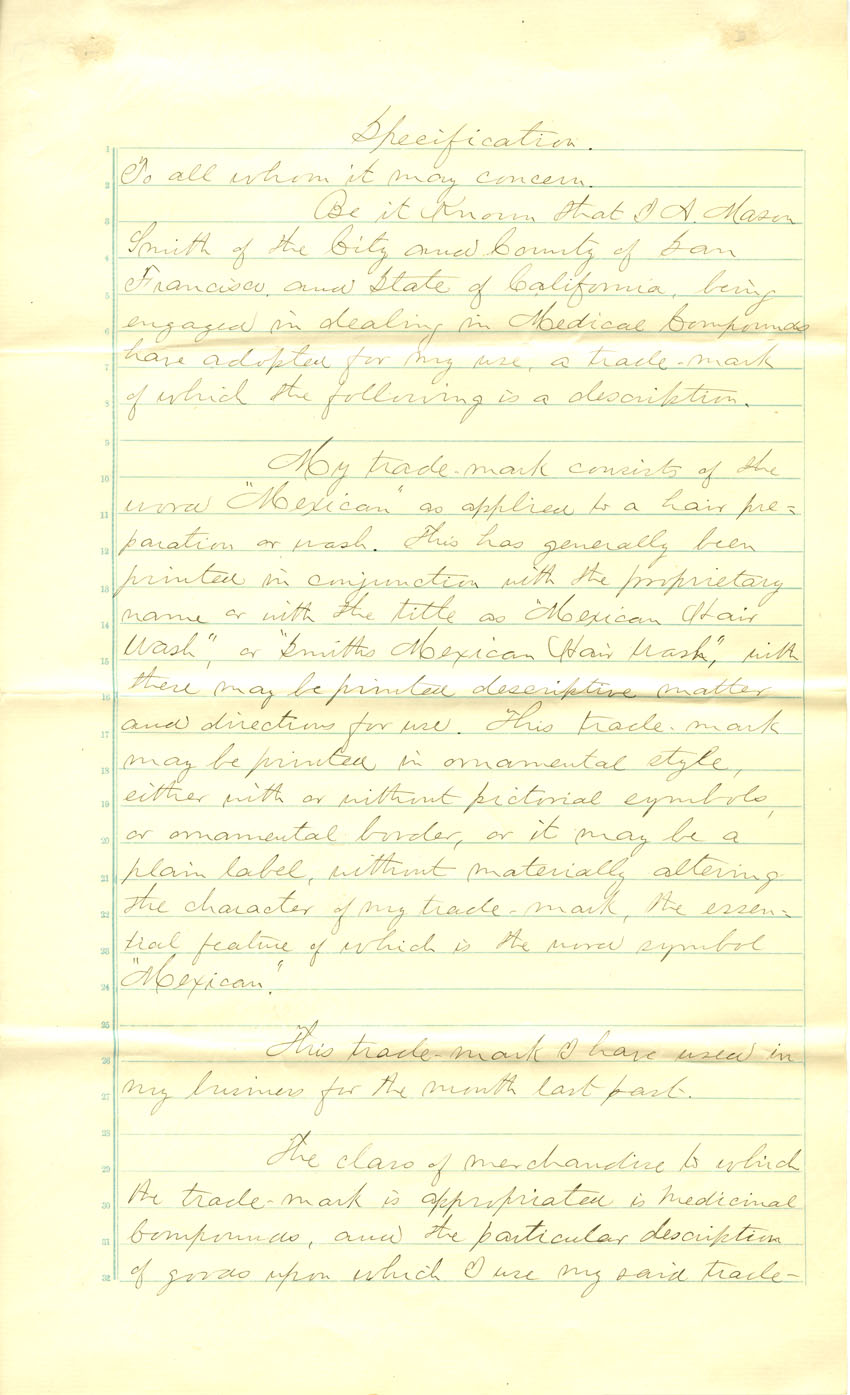 Specification.
1
To all whom it may concern.
2
Be it Known that I A. Mason
3
Smith of the City and County of San
4
Francisco, and State of California, being
5
engaged in dealing in Medical Compounds
6
have adopted for my use, a trade-mark
7
of which the following is a description.
8
9
My trade-mark consists of the
10
word "Mexican" as applied to a hair pre=
11
paration or wash. This has generally been
12
printed in conjunction with the proprietary
13
name or with the title as "Mexican Hair
14
Wash", or "Smiths Mexican Hair Wash", with
15
there may be printed descriptive matter
16
and directions for use. This trade-mark
17
may be printed in ornamental style,
18
either with or without pictorial symbols,
19
or ornamental border, or it may be a
20
plain label, without materially altering
21
the character of my trade-mark, the essen-
22
tial feature of which is the word symbol
23
"Mexican".
24
25
This trade-mark I have used in
26
my business for the month last past.
27
28
The class of merchandise to which
29
the trade-mark is appropriated is medicinal
30
Compounds, and the particular description
31
of goods upon which I use my said trade-
32